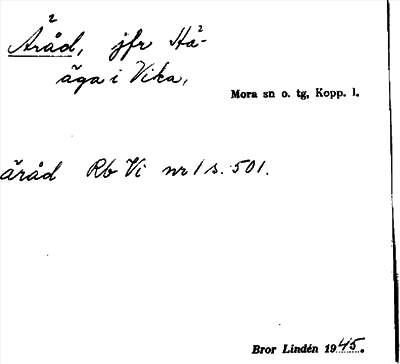 Åråd, jfr Hå²-
äga i Vika,
Mora sn o. tg, Kopp. l.
åråd Rb Vi nr 1 s. 501.
Bror Lindén 1945.